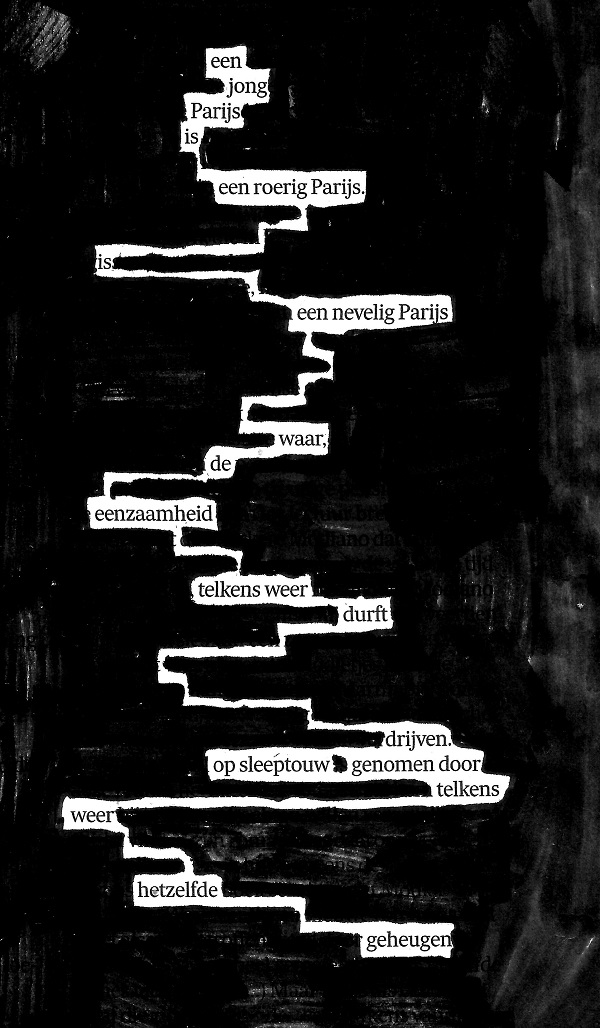 een
jong
Parijs
is
een roerig Parijs.
is
een nevelig Parijs
waar,
de
eenzaamheid
telkens weer
durft
drijven.
op sleeptouw genomen door
telkens
weer
hetzelfde
geheugen